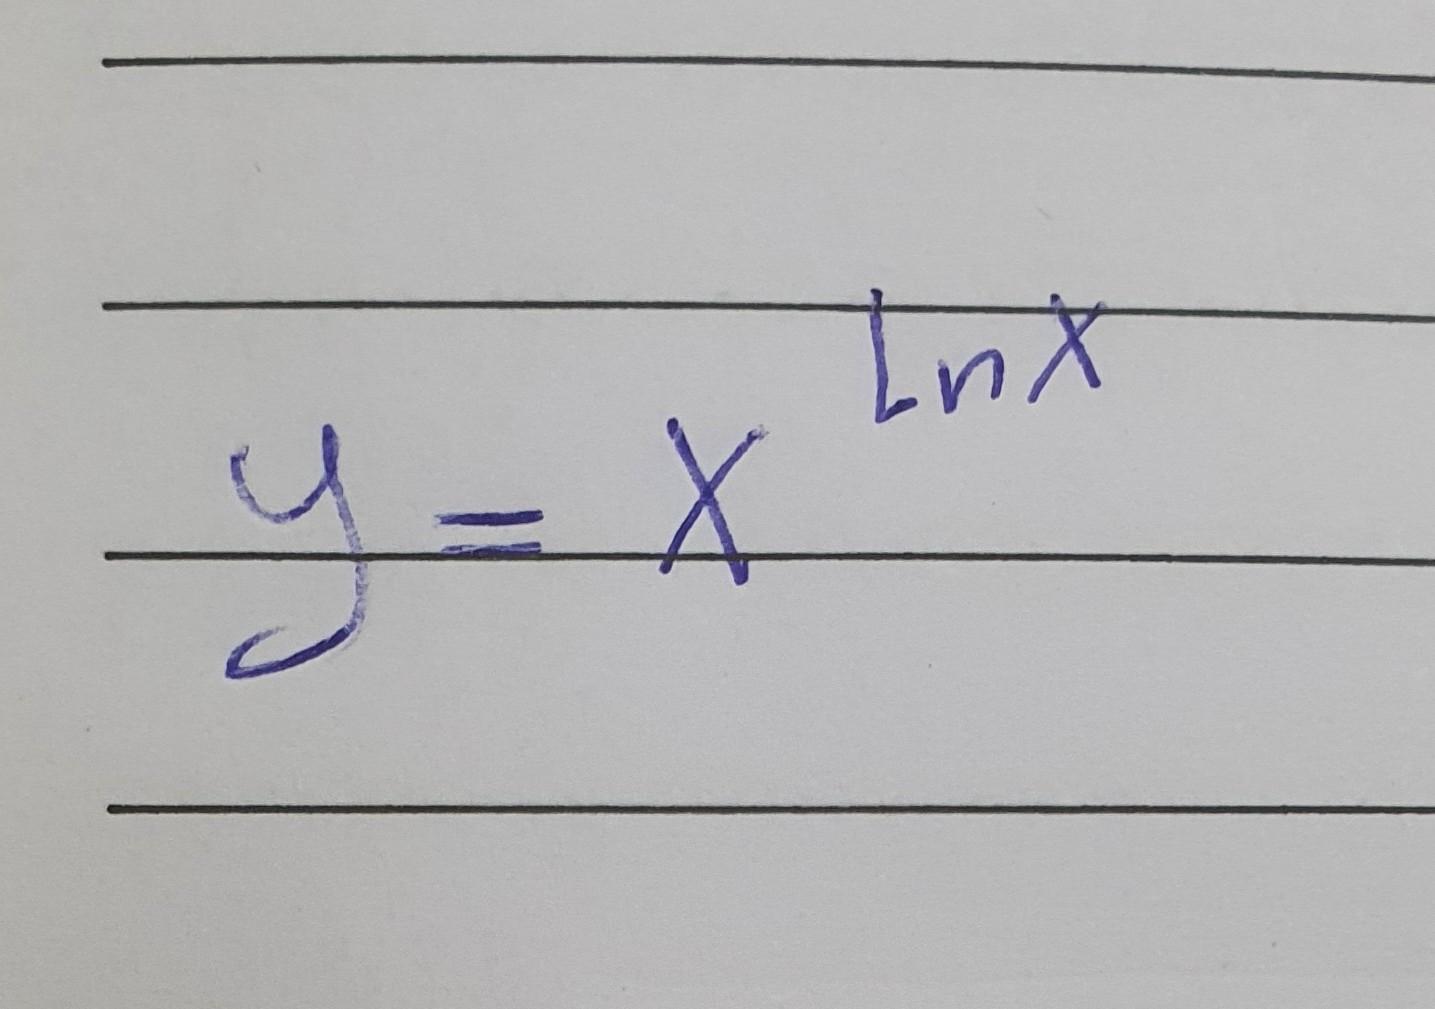 y = x^Lnx